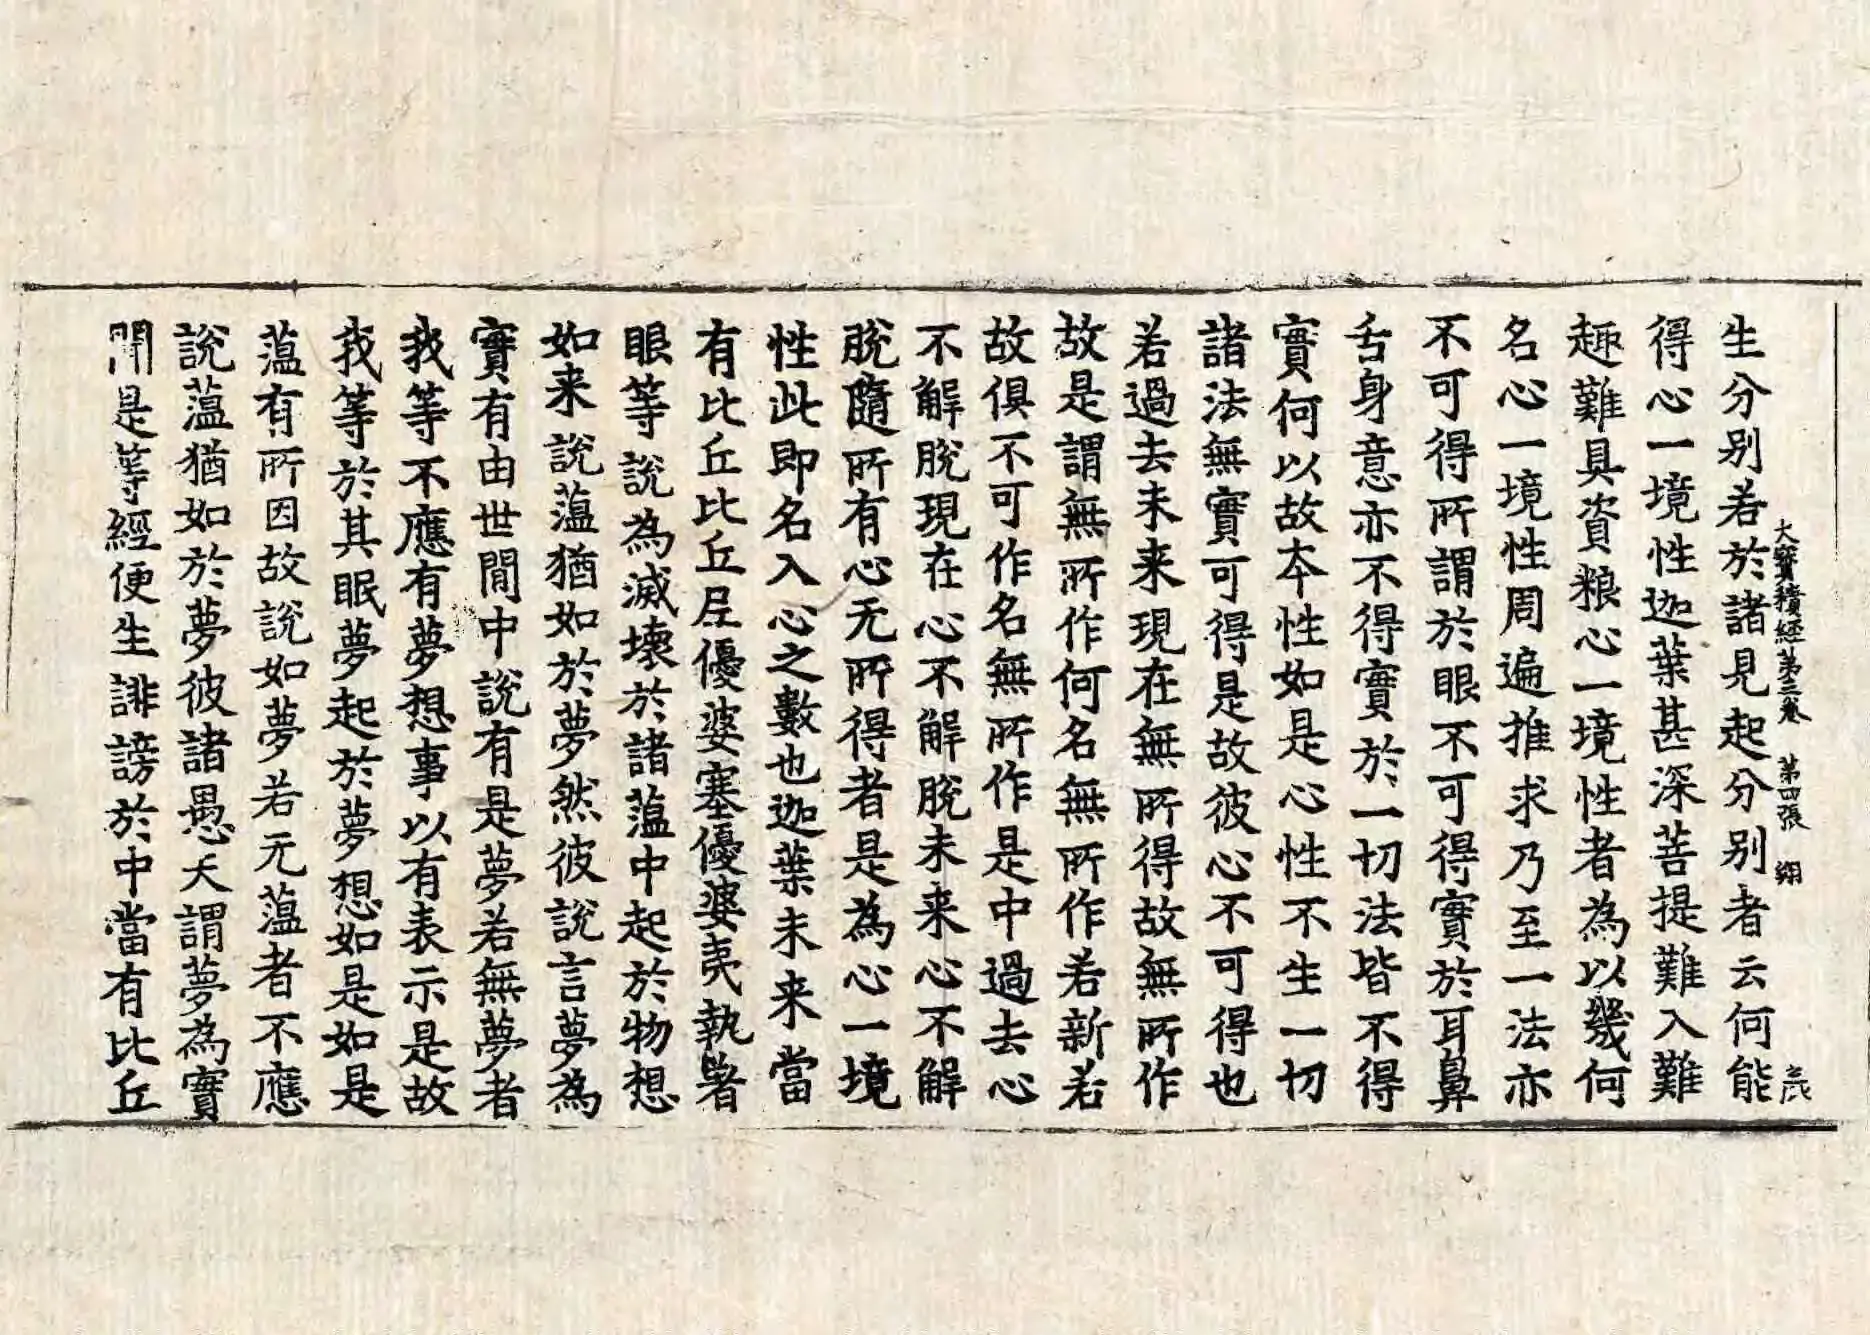 大寳積經第三卷 第四張 翔 㐮
生分别若於諸見起分别者云何能
得心一境性迦葉甚深菩提難入難
趣難具資粮心一境性者為以幾何
名心一境性周遍推求乃至一法亦
不可得所謂於眼不可得實於耳鼻
舌身意亦不得實於一切法皆不得
實何以故本性如是心性不生一切
諸法無實可得是故彼心不可得也
若過去未来現在無所得故無所作
故是謂無所作何名無所作若新若
故俱不可作名無所作是中過去心
不解脫現在心不解脫未来心不解
脫隨所有心无所得者是為心一境
性此即名入心之數也迦葉未来當
有比丘比丘尼優婆塞優婆夷執著
眼等說為滅壞於諸薀中起於物想
如来說薀猶如於夢然彼說言夢為
實有由世間中說有是夢若無夢者
我等不應有夢想事以有表示是故
我等於其眠夢起於夢想如是如是
薀有所因故說如夢若无薀者不應
說薀猶如於夢彼諸愚夫謂夢為實
聞是等經便生誹謗於中當有比丘